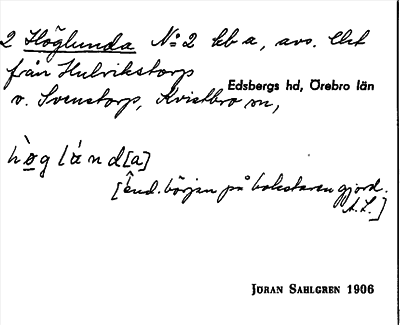 2 Höglunda No 2 kb a, avs. Utt
från Hulrikstorp
Edsbergs hd, Örebro län
v. Svenstorp, Kvistbro sn,
hø̀glánd[a]
[änd. början på bokstaven gjord.
A.L.]
JÖRAN SAHLGREN 1906